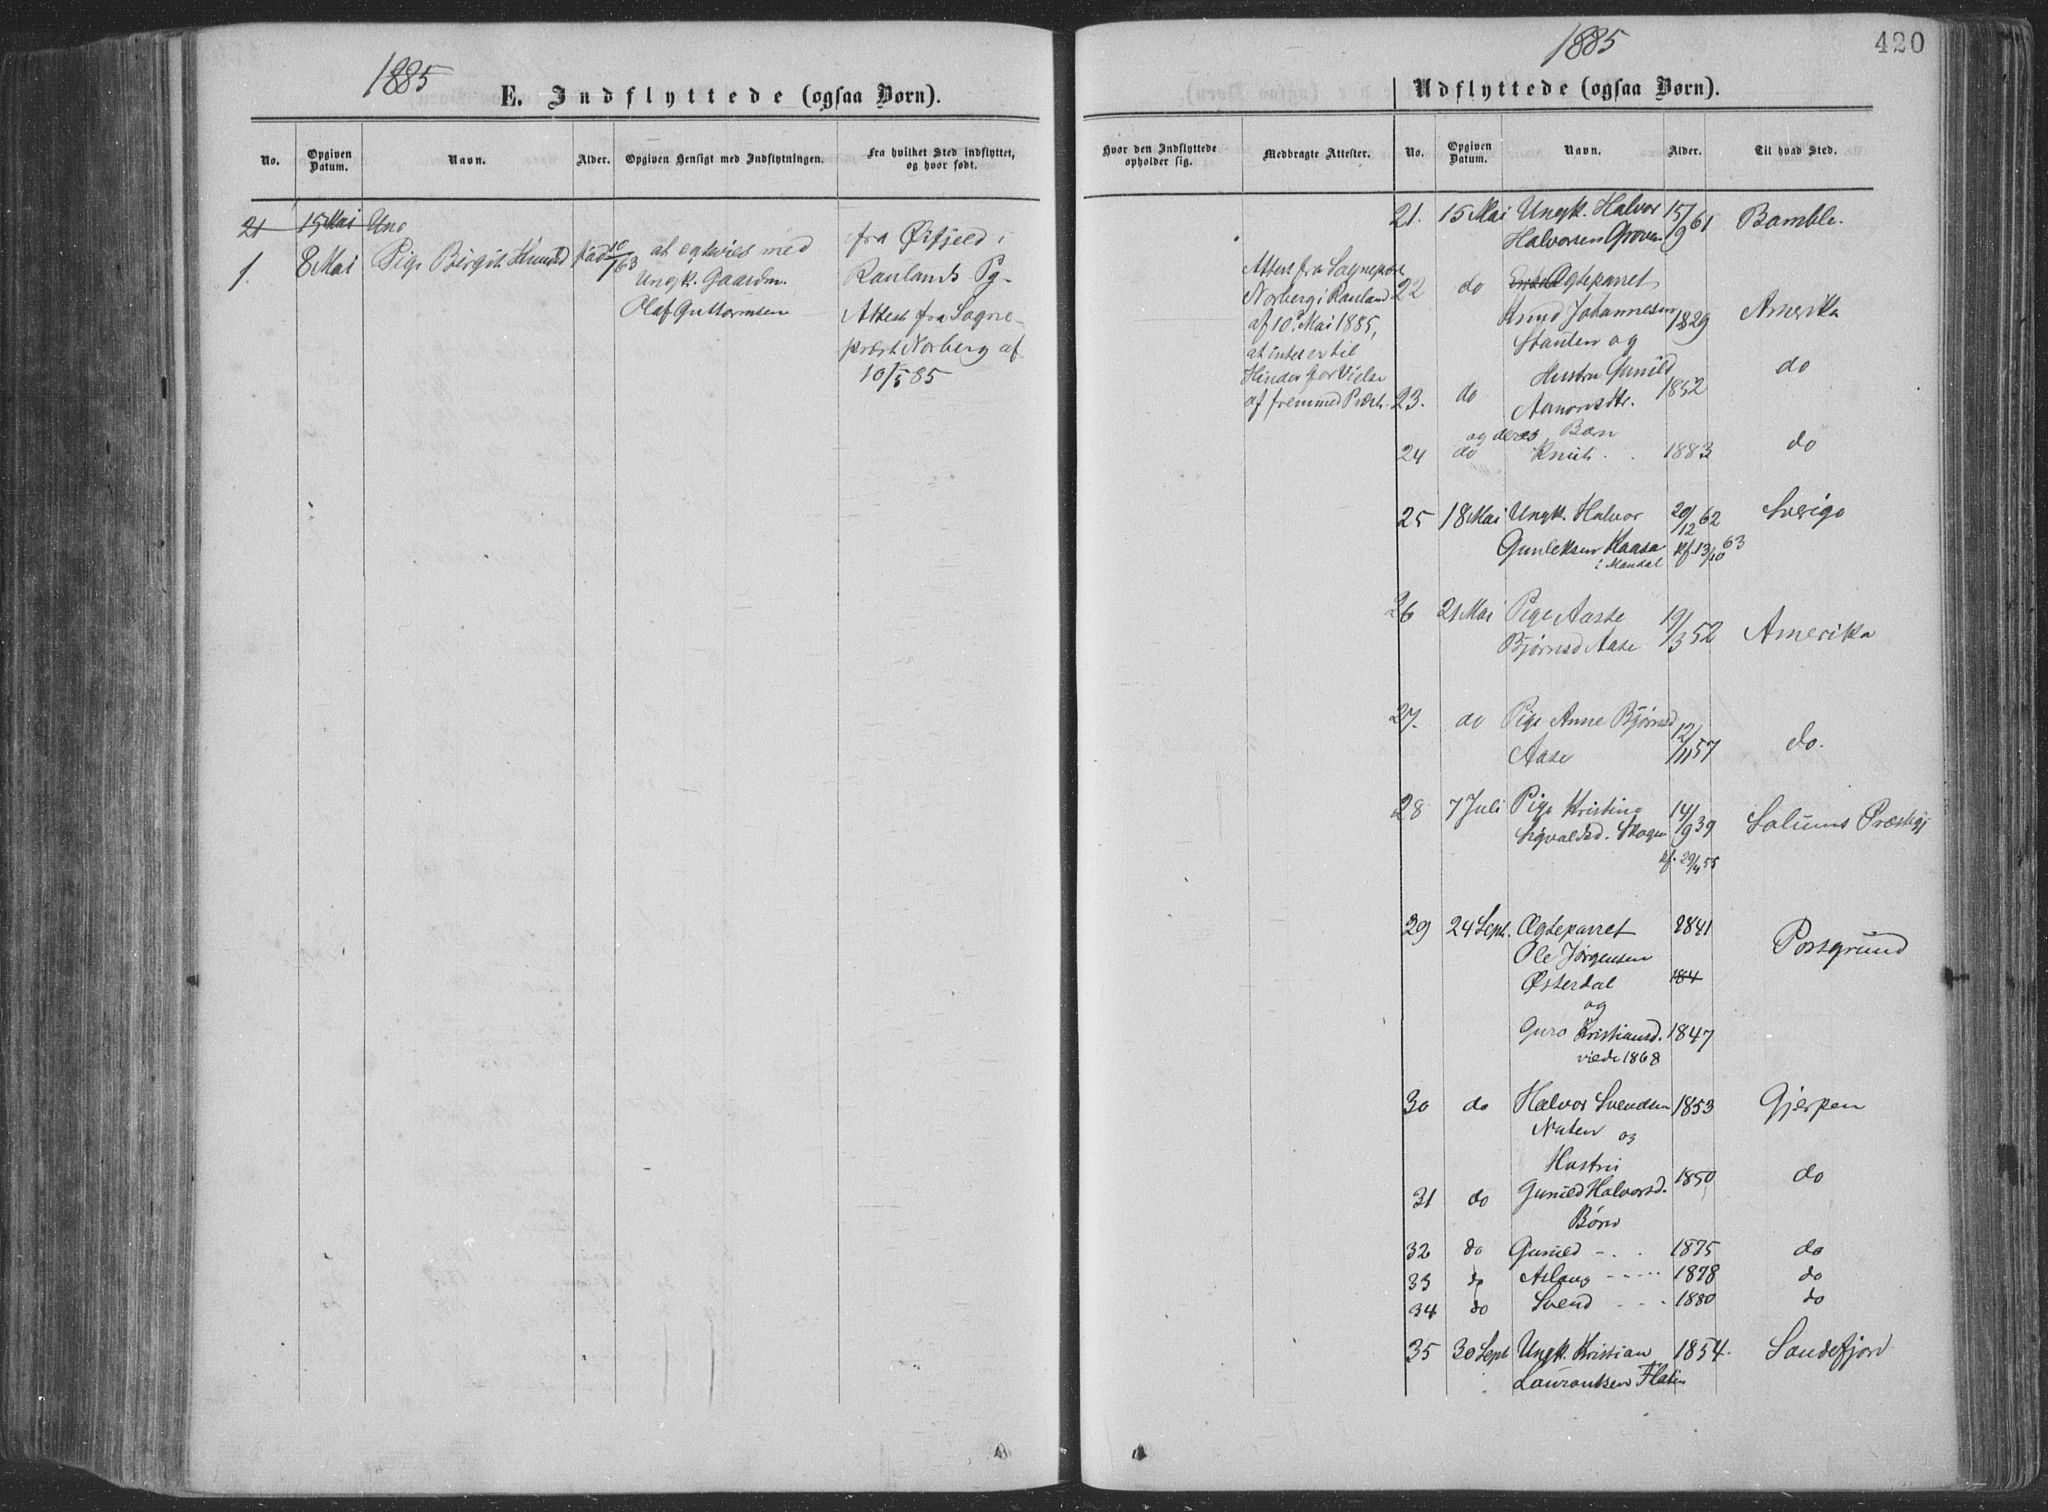 1885
E. Indflyttede (ogsaa Børn).
No.
Opgiven Datum.
Navn.
Alder.
Opgiven Hensigt med Indflytningen.
Fra hvilket Sted indflyttet,
og hvor født.
21 15 Mai Ung
1. 8 Mai Pige Birgit Knutsd. fød 10/1 63
at egtevies med
Ungk. Gaardm.
Olaf Guttormsen
fra Øifjeld i
Raulands Pg.
Attest fra Sogne-
præst Norberg af
10/5 85
1885
420
Udflyttede (ogsaa Børn).
Hvor den Indflyttede
opholder sig.
Medbragte Attester.
No.
Opgiven Datum.
Navn.
Alder.
Til hvad Sted.
Attest fra Sognepræst
Norberg i Rauland
af 10. Mai 1885,
at intet er til
Hinder for Vielse
af fremmed Præst.
21. 15 Mai Ungk. Halvor 15/9 61 Bamble.
Halvorsen Groven
22 do Ægteparret
Knud Johannesen 1829 Amerika
og
Hustru Gunild do
23. do Aanonsdtr. 1852
og deres Børn
24 do Knut . . 1883 do
25 18 Mai Ungk. Halvor 29/12 62 Sverige
Gunleksen Kaasa kf 13/10 63
i Mandal
26 21 Mai Pige Aaste 19/3 52 Amerika
Bjørnsd Aase
27. do Pige Anne Bjørnsd 12/11 57 do.
Aase
28 7 Juli Pige Kristine 14/9 39 Solums Præstegj
Sigvaldsd. Skogen
kf. 29/4 55
29 24 Sept. Ægteparret 1841 Porsgrund
Ole Jørgensen
Østerdal 184
og
Guro Kristiansd. 1847
viede 1868
30 do Halvor Svendsen 1853 Gjerpen
Nuten og
Hustru
31 do Gunild Halvorsd. 1850 do
Børn
32 do Gunild - . . 1875 do
33 do Aslaug - - - - 1878 do
34 do Svend - - - 1880 do
35 30 Sept Ungk. Kristian 1854. Sandefjord
Laurantsen Flatin